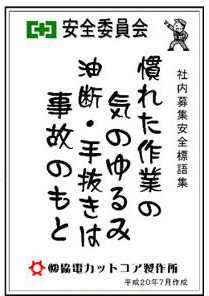 安全委員会
社内募集安全標語集
慣れた作業の
気のゆるみ
油断・手抜きは
事故のもと
㈱協電カットコア製作所
平成20年7月作成